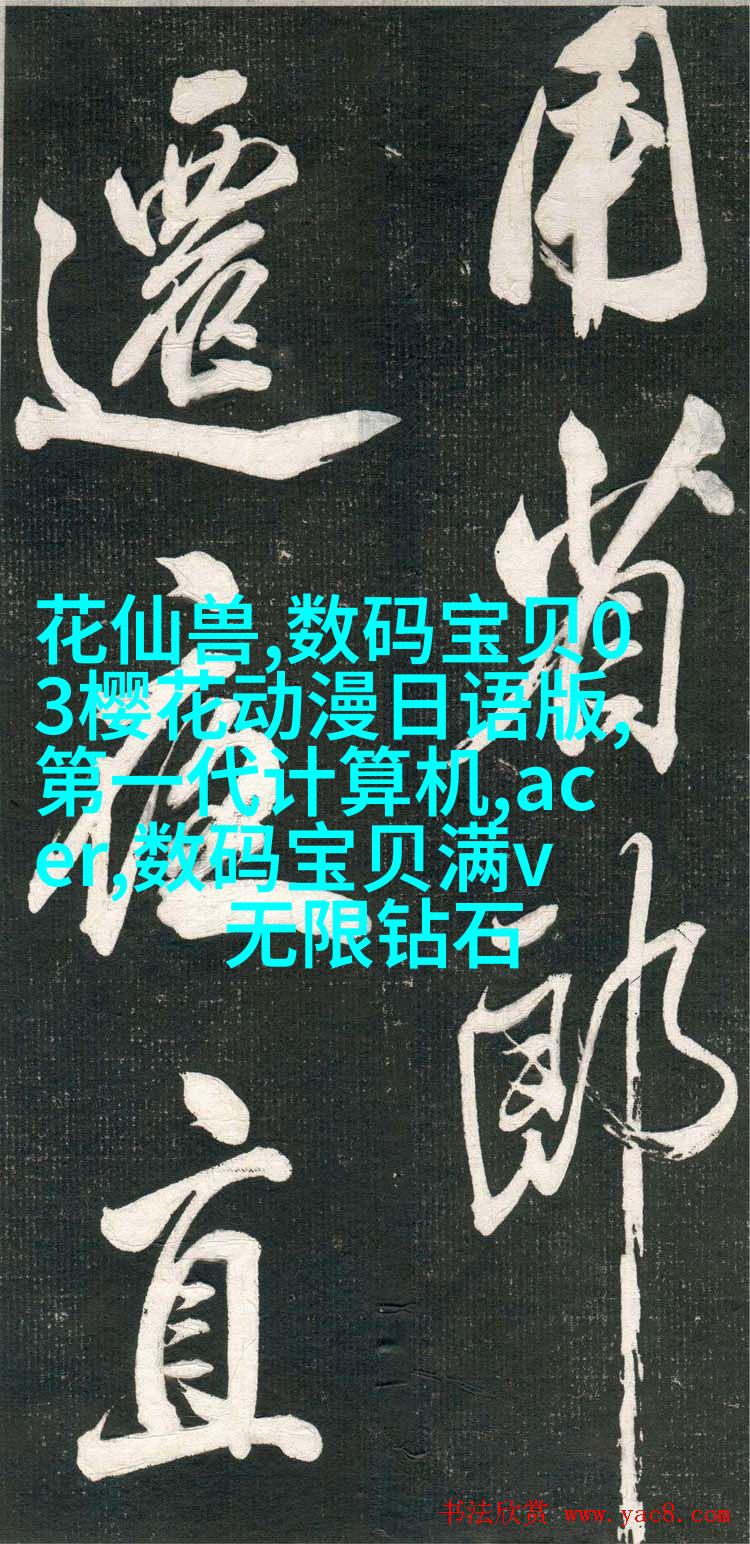 用省郎
還直
花仙兽,数码宝贝0
3樱花动漫日语版,
第一代计算机,ac
er,数码宝贝满v
无限钻石
书法欣赏 www.yac8.com